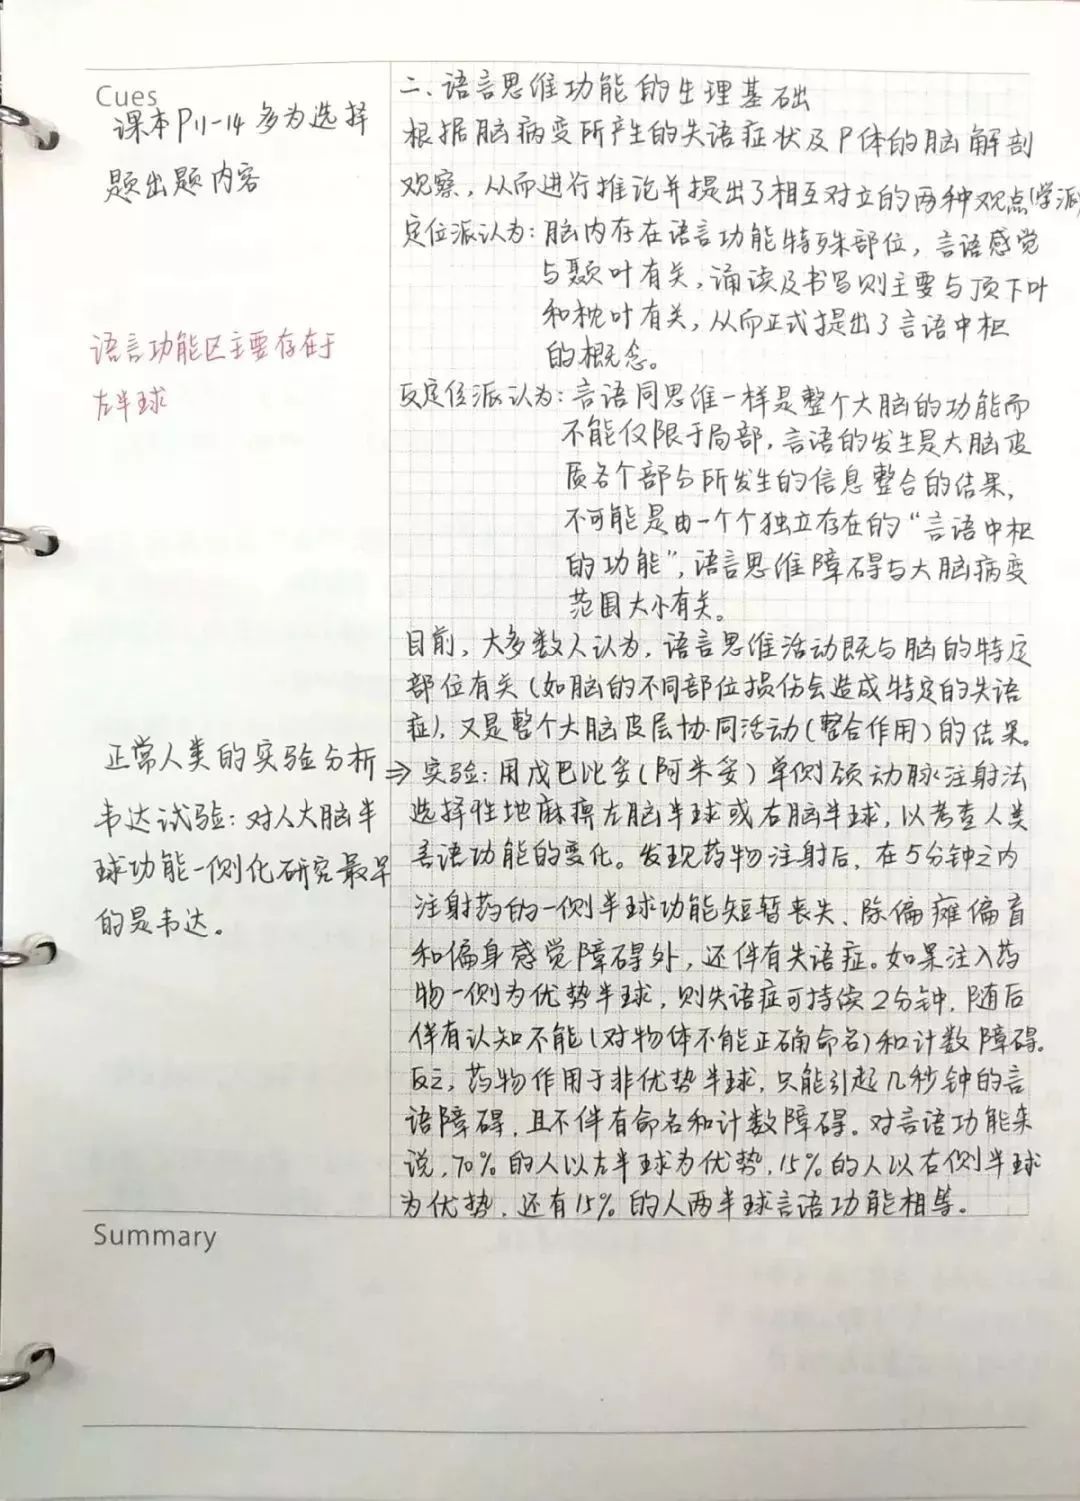 Cues
课本P11-14多为选择
题出题内容
语言功能区主要存在于
左半球
正常人类的实验分析
韦达试验:对人大脑半
球功能一侧化研究最早
的是韦达。
二、语言思维功能的生理基础
根据脑病变所产生的失语症状及尸体的脑解剖
观察,从而进行推论并提出了相互对立的两种观点(学派)
定位派认为:脑内存在语言功能特殊部位,言语感觉
与颞叶有关,诵读及书写则主要与顶下叶
和枕叶有关,从而正式提出了言语中枢
的概念。
反定位派认为:言语同思维一样是整个大脑的功能而
不能仅限于局部,言语的发生是大脑皮
质各个部分所发生的信息整合的结果,
不可能是由一个个独立存在的“言语中枢
的功能”,语言思维障碍与大脑病变
范围大小有关。
目前,大多数人认为,语言思维活动既与脑的特定
部位有关(如脑的不同部位损伤会造成特定的失语
症),又是整个大脑皮层协同活动(整合作用)的结果。
⇒实验:用戊巴比妥(阿米妥)单侧颈动脉注射法
选择性地麻痹左脑半球或右脑半球,以考查人类
言语功能的变化。发现药物注射后,在5分钟之内
注射药的一侧半球功能短暂丧失、除偏瘫偏盲
和偏身感觉障碍外,还伴有失语症。如果注入药
物一侧为优势半球,则失语症可持续2分钟,随后
伴有认知不能(对物体不能正确命名)和计数障碍。
反之,药物作用于非优势半球,只能引起几秒钟的言
语障碍,且不伴有命名和计数障碍。对言语功能来
说,70%的人以左半球为优势,15%的人以右侧半球
为优势,还有15%的人两半球言语功能相等。
Summary